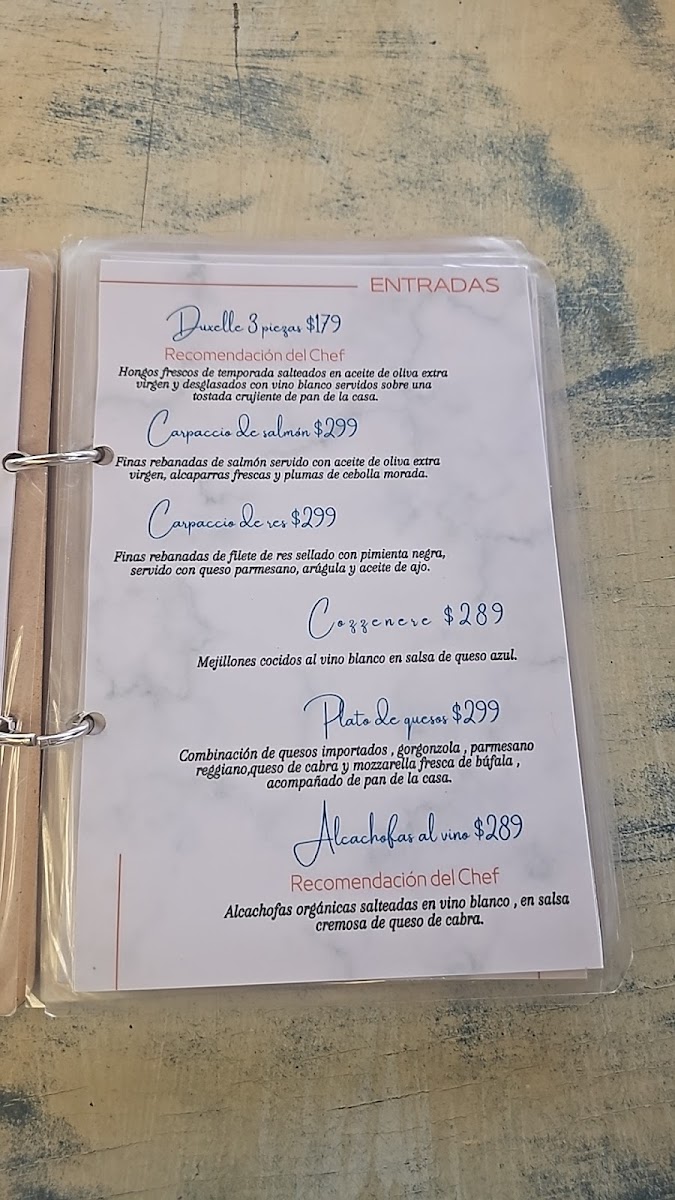 ENTRADAS
Duxelle 3 piezas $179
Recomendación del Chef
Hongos frescos de temporada salteados en aceite de oliva extra
virgen y desglasados con vino blanco servidos sobre una
tostada crujiente de pan de la casa.
Carpaccio de salmón $299
Finas rebanadas de salmón servido con aceite de oliva extra
virgen, alcaparras frescas y plumas de cebolla morada.
Carpaccio de res $299
Finas rebanadas de filete de res sellado con pimienta negra,
servido con queso parmesano, arúgula y aceite de ajo.
Cozzenere $289
Mejillones cocidos al vino blanco en salsa de queso azul.
Plato de quesos $299
Combinación de quesos importados , gorgonzola , parmesano
reggiano,queso de cabra y mozzarella fresca de búfala ,
acompañado de pan de la casa.
Alcachofas al vino $289
Recomendación del Chef
Alcachofas orgánicas salteadas en vino blanco , en salsa
cremosa de queso de cabra.